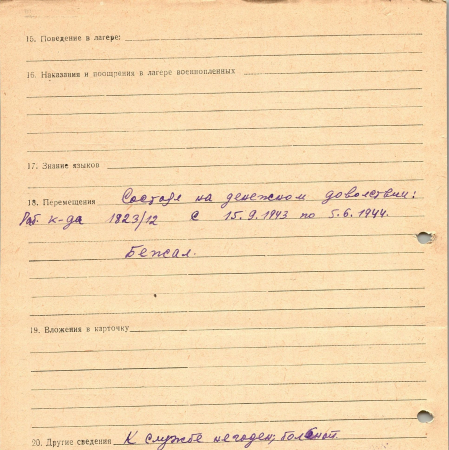 15. Поведение в лагере:
16. Наказания и поощрения в лагере военнопленных
17. Знание языков
18. Перемещения Состоял на денежном доволствии:
Раб. к-да 1823/12 с 15.9.1943 по 5.6.1944.
Бежал.
19. Вложения в карточку
20. Другие сведения К службе негоден, больной